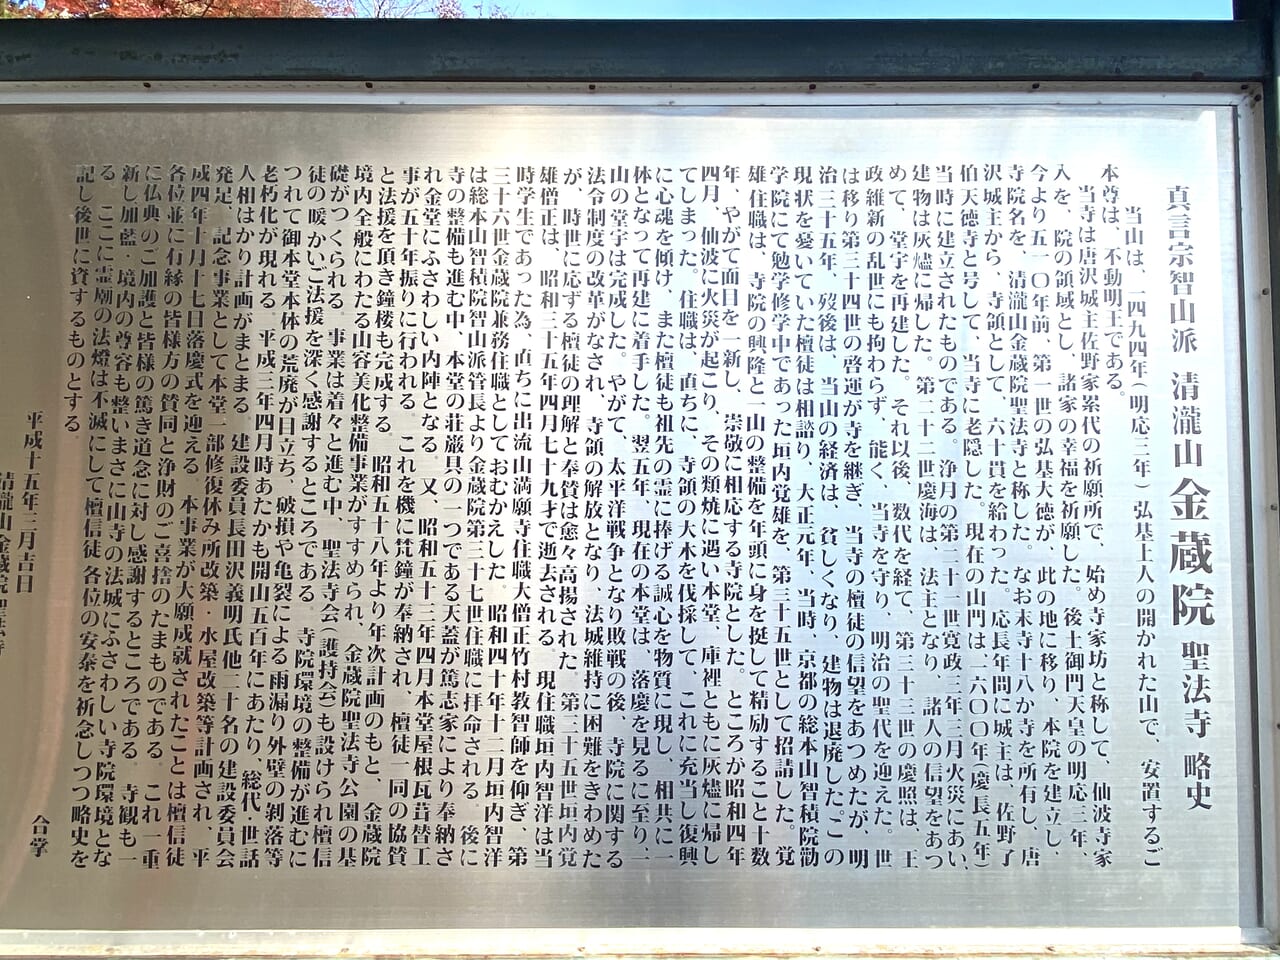 真言宗智山派 清瀧山 金蔵院 聖法寺 略史
当山は、一四九四年(明応三年)弘基上人の開かれた山で、安置するご
本尊は、不動明王である。
当寺は唐沢城主佐野家累代の祈願所で、始め寺家坊と称して、仙波寺家
入を、院の領域とし、諸家の幸福を祈願した。後土御門天皇の明応三年、
今より五一〇年前、第一世の弘基大徳が、此の地に移り、本院を建立し、
寺院名を、清瀧山金蔵院聖法寺と称した。なお末寺十八か寺を所有し、唐
沢城主から、寺領として、六十貫を給わった。応長年間に城主は、佐野了
伯天徳寺と号して、当寺に老隠した。現在の山門は一六〇〇年(慶長五年)
当時に建立されたものである。浄月の第二十一世寛政三年三月火災にあい、
建物は灰燼に帰した。第二十二世慶海は、法主となり、諸人の信望をあつ
めて、堂宇を再建した。それ以後、数代を経て、第三十三世の慶照は、王
政維新の乱世にも拘わらず、能く、当寺を守り、明治の聖代を迎えた。世
は移り第三十四世の啓運が寺を継ぎ、当寺の檀徒の信望をあつめたが、明
治三十五年、歿後は、当山の経済は、貧しくなり、建物は退廃した。この
現状を憂いていた檀徒は相諮り、大正元年、当時、京都の総本山智積院勧
学院にて勉学修学中であった垣内覚雄を、第三十五世として招請した。覚
雄住職は、寺院の興隆と一山の整備を年頭に身を挺して精励すること十数
年、やがて面目を一新し、崇敬に相応する寺院とした。ところが昭和四年
四月、仙波に火災が起こり、その類焼に遇い本堂、庫裡ともに灰燼に帰し
てしまった。住職は、直ちに、寺領の大木を伐採して、これに充当し復興
に心魂を傾け、また檀徒も祖先の霊に捧げる誠心を物質に現し、相共に一
体となって再建に着手した。翌五年、現在の本堂は、落慶を見るに至り、一
山の堂宇は完成した。やがて、太平洋戦争となり敗戦の後、寺院に関する
法令制度の改革がなされ、寺領の解放となり、法城維持に困難をきわめた
が、時世に応ずる檀徒の理解と奉賛は愈々高揚された。第三十五世垣内覚
雄僧正は、昭和三十五年四月七十九才で逝去される。現住職垣内智洋は当
時学生であった為、直ちに出流山満願寺住職大僧正竹村教智師を仰ぎ、第
三十六世金蔵院兼務住職としておむかえした。昭和四十年十二月垣内智洋
は総本山智積院智山派管長より金蔵院第三十七世住職に拝命される。後に
寺の整備も進む中、本堂の荘厳具の一つである天蓋が篤志家により奉納さ
れ金堂にふさわしい内陣となる。又、昭和五十三年四月本堂屋根瓦葺替工
事が五十年振りに行われる。これを機に梵鐘が奉納され、檀徒一同の協賛
と法援を頂き鐘楼も完成する。昭和五十八年より年次計画のもと、金蔵院
境内全般にわたる山容美化整備事業がすすめられ、金蔵院聖法寺公園の基
礎がつくられる。事業は着々と進む中、聖法寺会(護持会)も設けられ檀信
徒の暖かいご法援を深く感謝するところである。寺院環境の整備が進むに
つれて御本堂本体の荒廃が目立ち、破損や亀裂による雨漏り外壁の剥落等
老朽化が現れる。平成三年四月時あたかも開山五百年にあたり、総代・世話
人相はかり計画がまとまる。建設委員長田沢義明氏他二十名の建設委員会
発足、記念事業として本堂一部修復休み所改築・水屋改築等計画され、平
成四年十月十七日落慶式を迎える。本事業が大願成就されたことは檀信徒
各位並に有縁の皆様方の賛同と浄財のご喜捨のたまものである。これ一重
に仏典のご加護と皆様の篤き道念に対し感謝するところである。寺観も一
新し加藍・境内の尊容も整いまさに山寺の法城にふさわしい寺院環境とな
る。ここに霊廟の法燈は不滅にして檀信徒各位の安泰を祈念しつつ略史を
記し後世に資するものとする。
平成十五年三月吉日
清瀧山金蔵院聖法寺
合掌